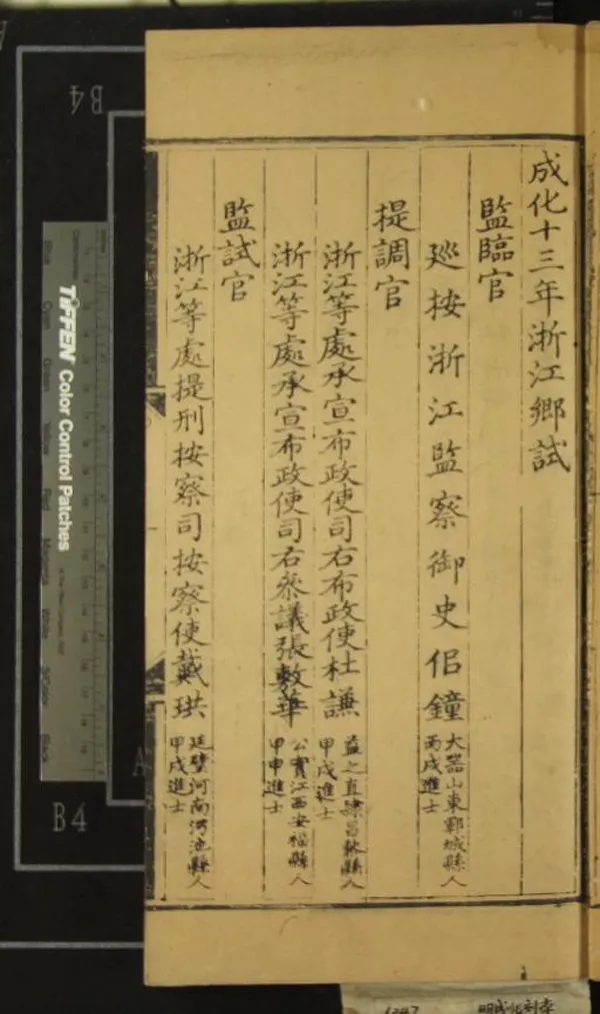 成化十三年浙江鄉試
監臨官
廵按浙江監察御史侶鐘
大器山東鄆城縣人
丙戌進士
提調官
浙江等處承宣布政使司右布政使杜謙
益之直隸昌黎縣人
甲戌進士
浙江等處承宣布政使司右叅議張敷華
公實江西安福縣人
甲申進士
監試官
浙江等處提刑按察司按察使戴珙
廷璧河南河池縣人
甲戌進士
TIFFEN Color Control Patches
B4
B4